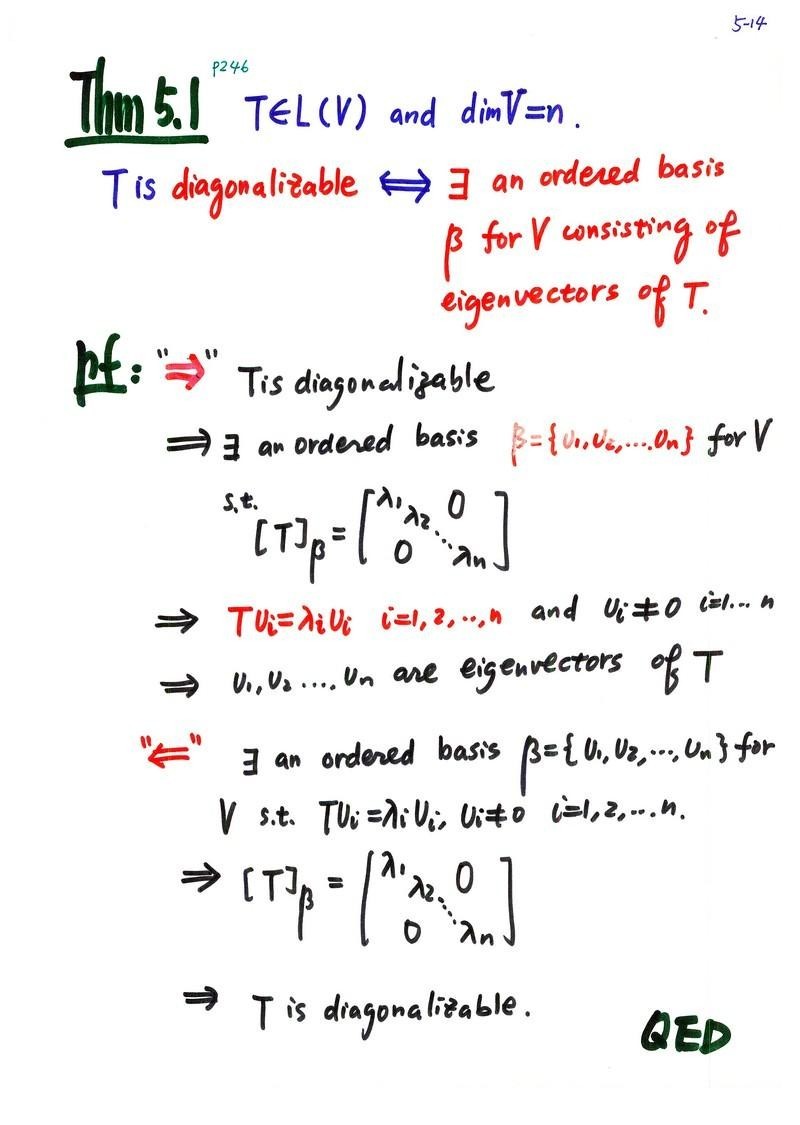 5-14
p246
Thm 5.1 T∈L(V) and dimV=n.
T is diagonalizable ⟺ ∃ an ordered basis
β for V consisting of
eigenvectors of T.
pf: "⇒" T is diagonalizable
⇒ ∃ an ordered basis β={υ₁,υ₂,...υₙ} for V
s.t.
[T]β = [λ₁ λ₂ 0
0 ⋱ λₙ]
⇒ Tυᵢ=λᵢυᵢ i=1,2,..,n and υᵢ≠0 i=1...n
⇒ υ₁,υ₂...,υₙ are eigenvectors of T
"⇐" ∃ an ordered basis β={υ₁,υ₂,...,υₙ} for
V s.t. Tυᵢ=λᵢυᵢ, υᵢ≠0 i=1,2,...n.
⇒ [T]β = [λ₁ λ₂ 0
0 ⋱ λₙ]
⇒ T is diagonalizable.
QED